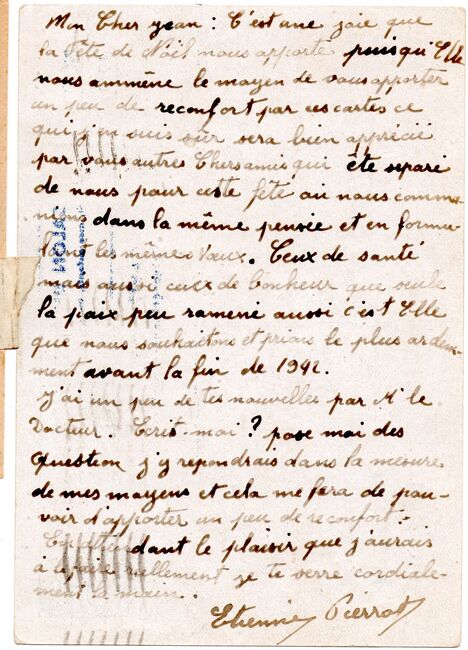 Mon Cher Jean : C'est une joie que
la Fête de Noël nous apporte puisqu'Elle
nous ammène le moyen de vous apporter
un peu de reconfort par ces cartes ce
qui j'en suis sûr sera bien apprécié
par vous autres Chers amis qui ête separé
de nous pour cette fête ou nous commu-
nions dans la même pensée et en formu-
lant les mêmes Vœux. Ceux de santé
mais aussi ceux de bonheur que seule
la paix peu ramené aussi c'est Elle
que nous souhaitons et prions le plus ardem-
ment avant la fin de 1942.
J'ai un peu de tes nouvelles par Mr le
Docteur. Ecris-moi ? pose moi des
Question j'y repondrais dans la mesure
de mes moyens et cela me fera de pou-
voir d'apporter un peu de reconfort :
dant le plaisir que j'aurais
à te réellement je te serre cordiale-
ment la main.
Etienne Pierrot